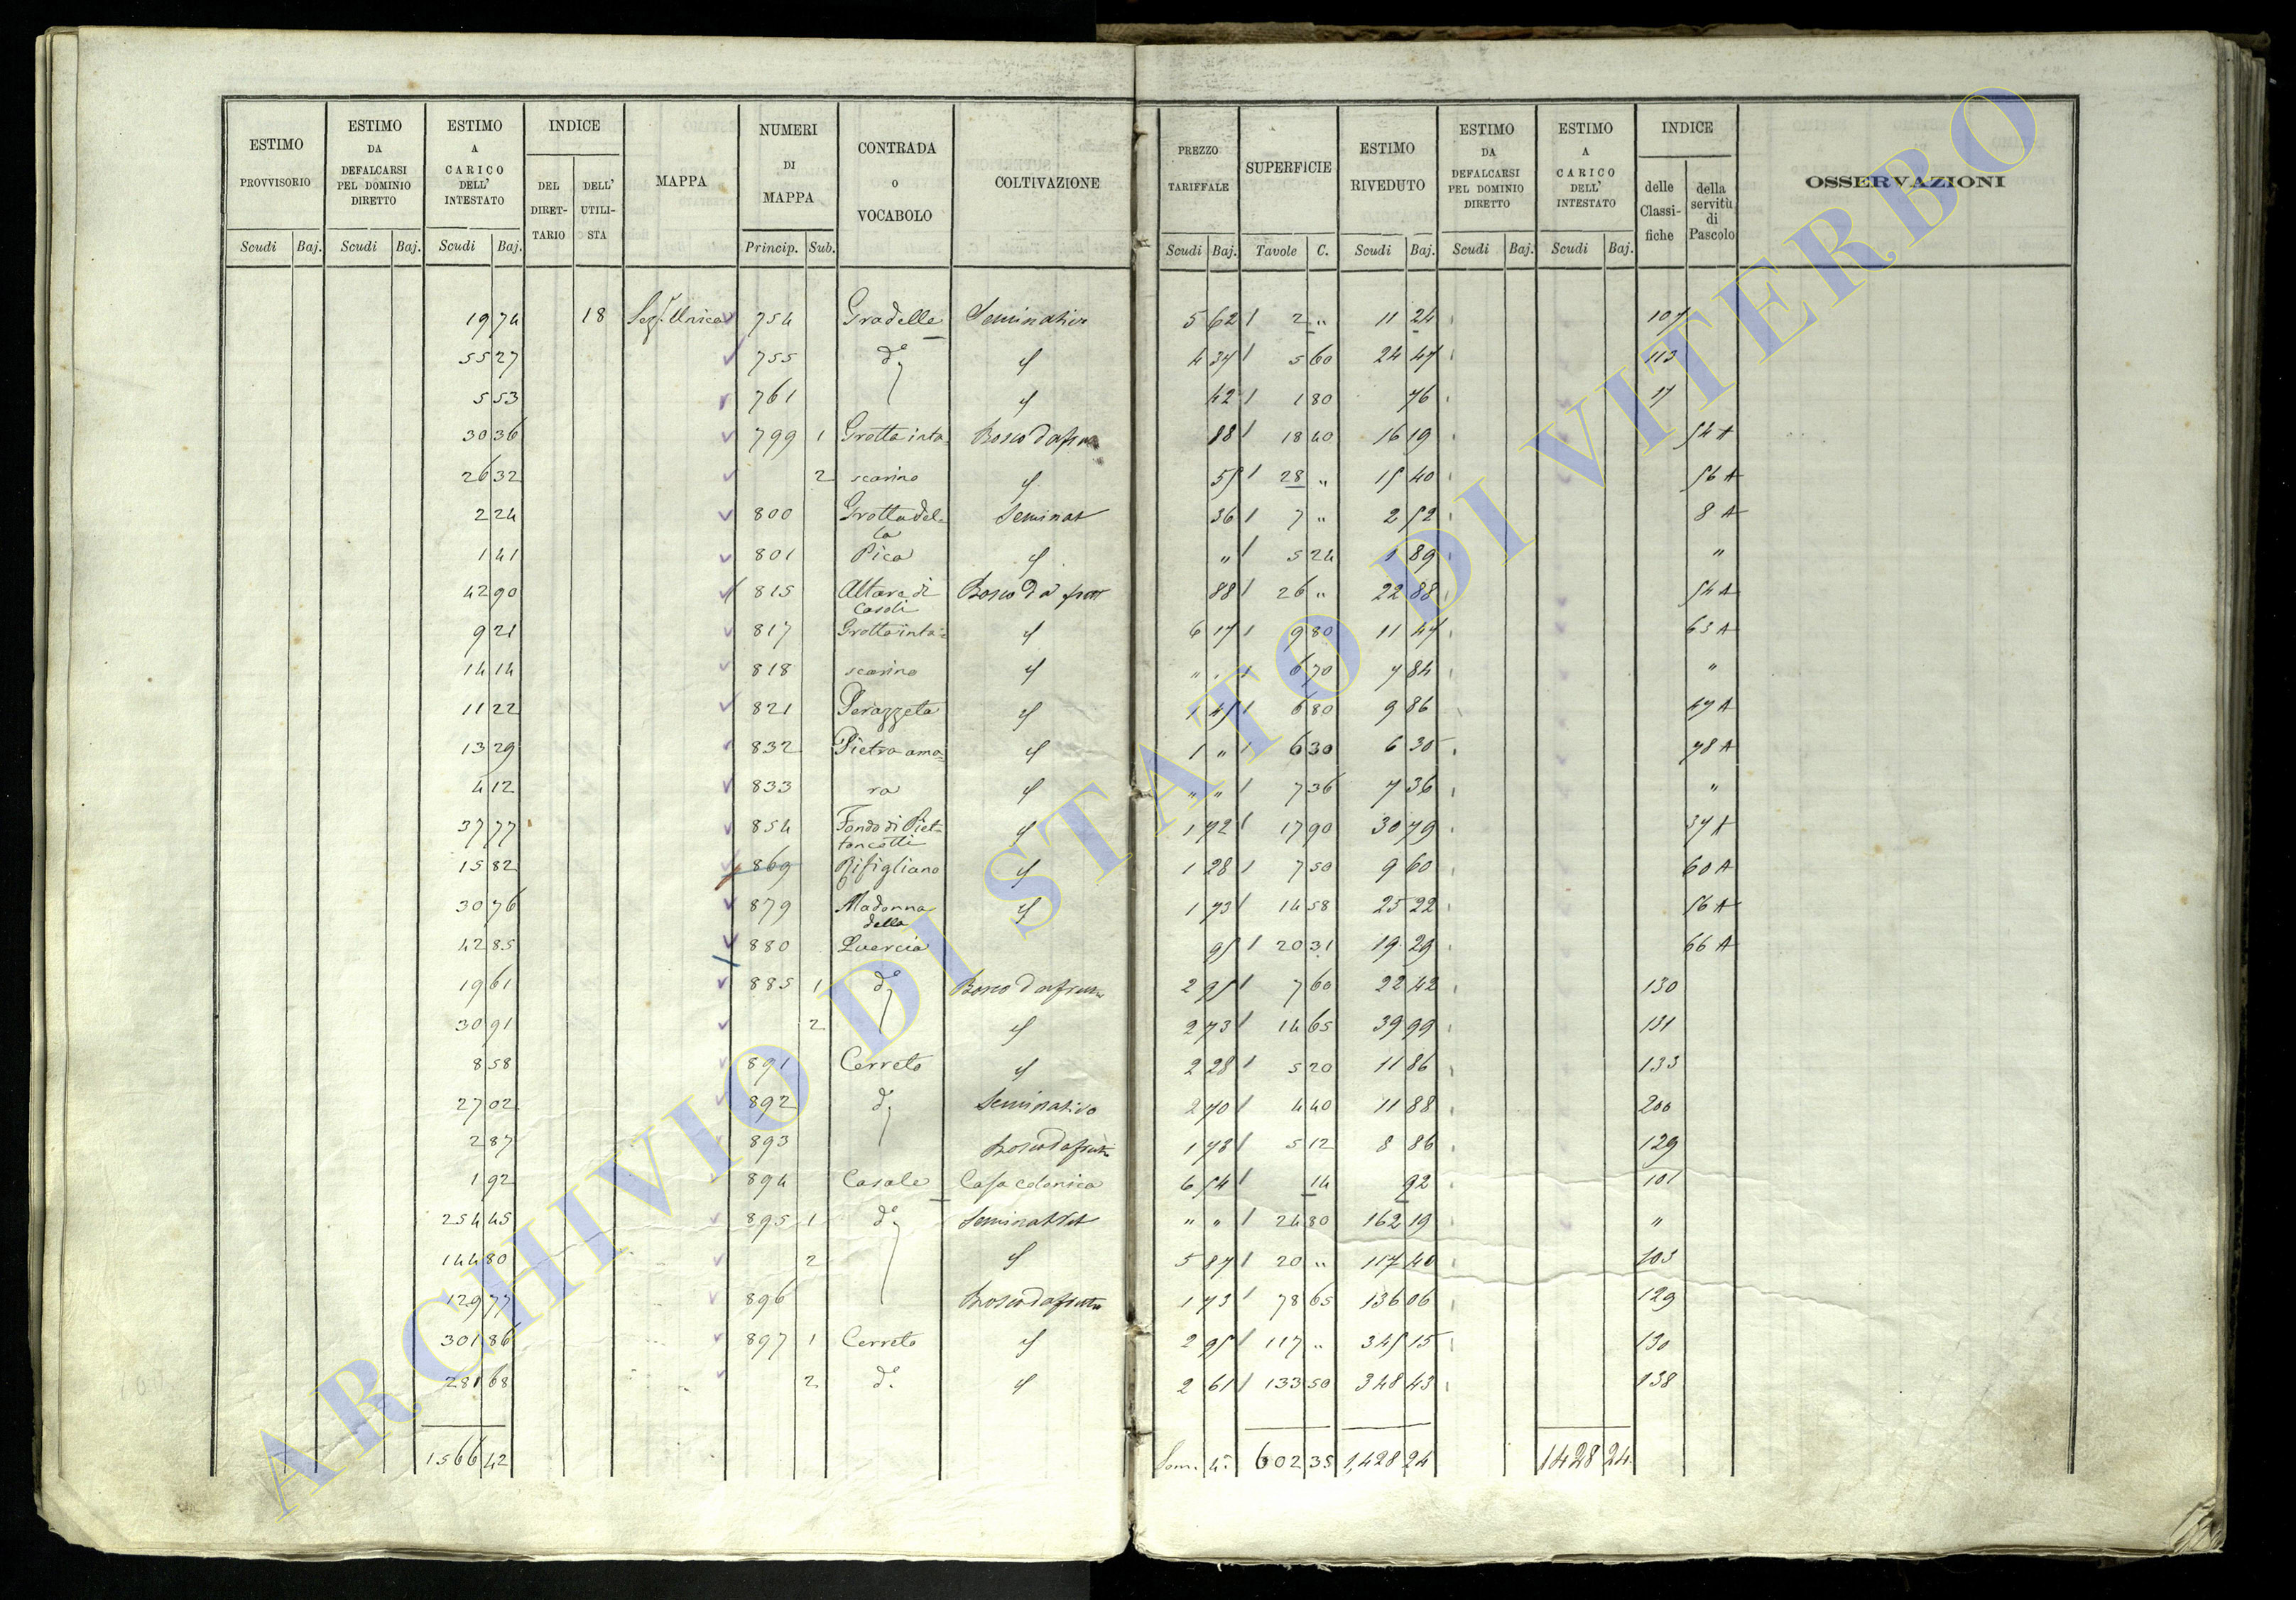 ESTIMO PROVVISORIO | ESTIMO DA DEFALCARSI PEL DOMINIO DIRETTO | ESTIMO A CARICO DELL' INTESTATO | INDICE DEL DIRET-TARIO | DELL' UTILI-STA | MAPPA | NUMERI DI MAPPA | CONTRADA O VOCABOLO | COLTIVAZIONE | PREZZO TARIFFALE | SUPERFICIE | ESTIMO RIVEDUTO | ESTIMO DA DEFALCARSI PEL DOMINIO DIRETTO | ESTIMO A CARICO DELL' INTESTATO | INDICE delle Classi-fiche | della servitù di Pascolo | OSSERVAZIONI
Scudi Baj. | Scudi Baj. | Scudi Baj. | Princip. Sub. | Scudi Baj. | Tavole C. | Scudi Baj. | Scudi Baj. | Scudi Baj.
19 74 18 Sez. Unica 754 Gradelle 5 62 2 " 11 24 107
55 27 755 d° 4 37 5 60 24 47 113
5 53 761 42 1 80 76 17
30 36 799 1 Grotta inta- Bosco da 88 18 40 16 19 54 A
26 32 2 scarino 55 28 " 15 40 56 A
2 24 800 Grotta del- Seminat 36 7 " 2 52 8 A
la
1 41 801 Pica " 5 24 1 89 "
42 90 815 Altare di Bosco da 88 26 " 22 88 54 A
Casoli
9 21 817 Grotta inta- 6 17 9 80 11 47 63 A
14 14 818 scarino " " 6 70 7 84 "
11 22 821 Perazzeta 1 45 6 80 9 86 47 A
13 29 832 Pietra ama- 1 " 6 30 6 30 78 A
4 12 833 ra " " 7 36 7 36 "
37 77 854 Fondo di 1 72 17 90 30 79 37 A
15 82 869 Rifigliano 1 28 7 50 9 60 60 A
30 76 879 Madonna 1 73 14 58 25 22 56 A
della
42 85 880 Quercia 95 20 31 19 29 66 A
19 61 885 1 d° Bosco da 2 95 7 60 22 42 130
30 91 2 2 73 14 65 39 99 131
8 58 891 Cerreto 2 28 5 20 11 86 133
27 02 892 d° Seminativo 2 70 4 40 11 88 200
2 87 893 Bosco da 1 73 5 12 8 86 129
1 92 894 Casale Casa colonica 6 54 14 92 101
254 45 895 1 d° " " 24 80 162 19 "
144 80 2 5 87 20 " 117 40 103
129 77 896 Bosco da 1 73 78 65 136 06 129
301 86 897 1 Cerreto 2 95 117 " 345 15 130
281 68 2 d° 2 61 133 50 348 43 138
1566 42 602 35 1,428 24 1428 24
ARCHIVIO DI STATO DI VITERBO